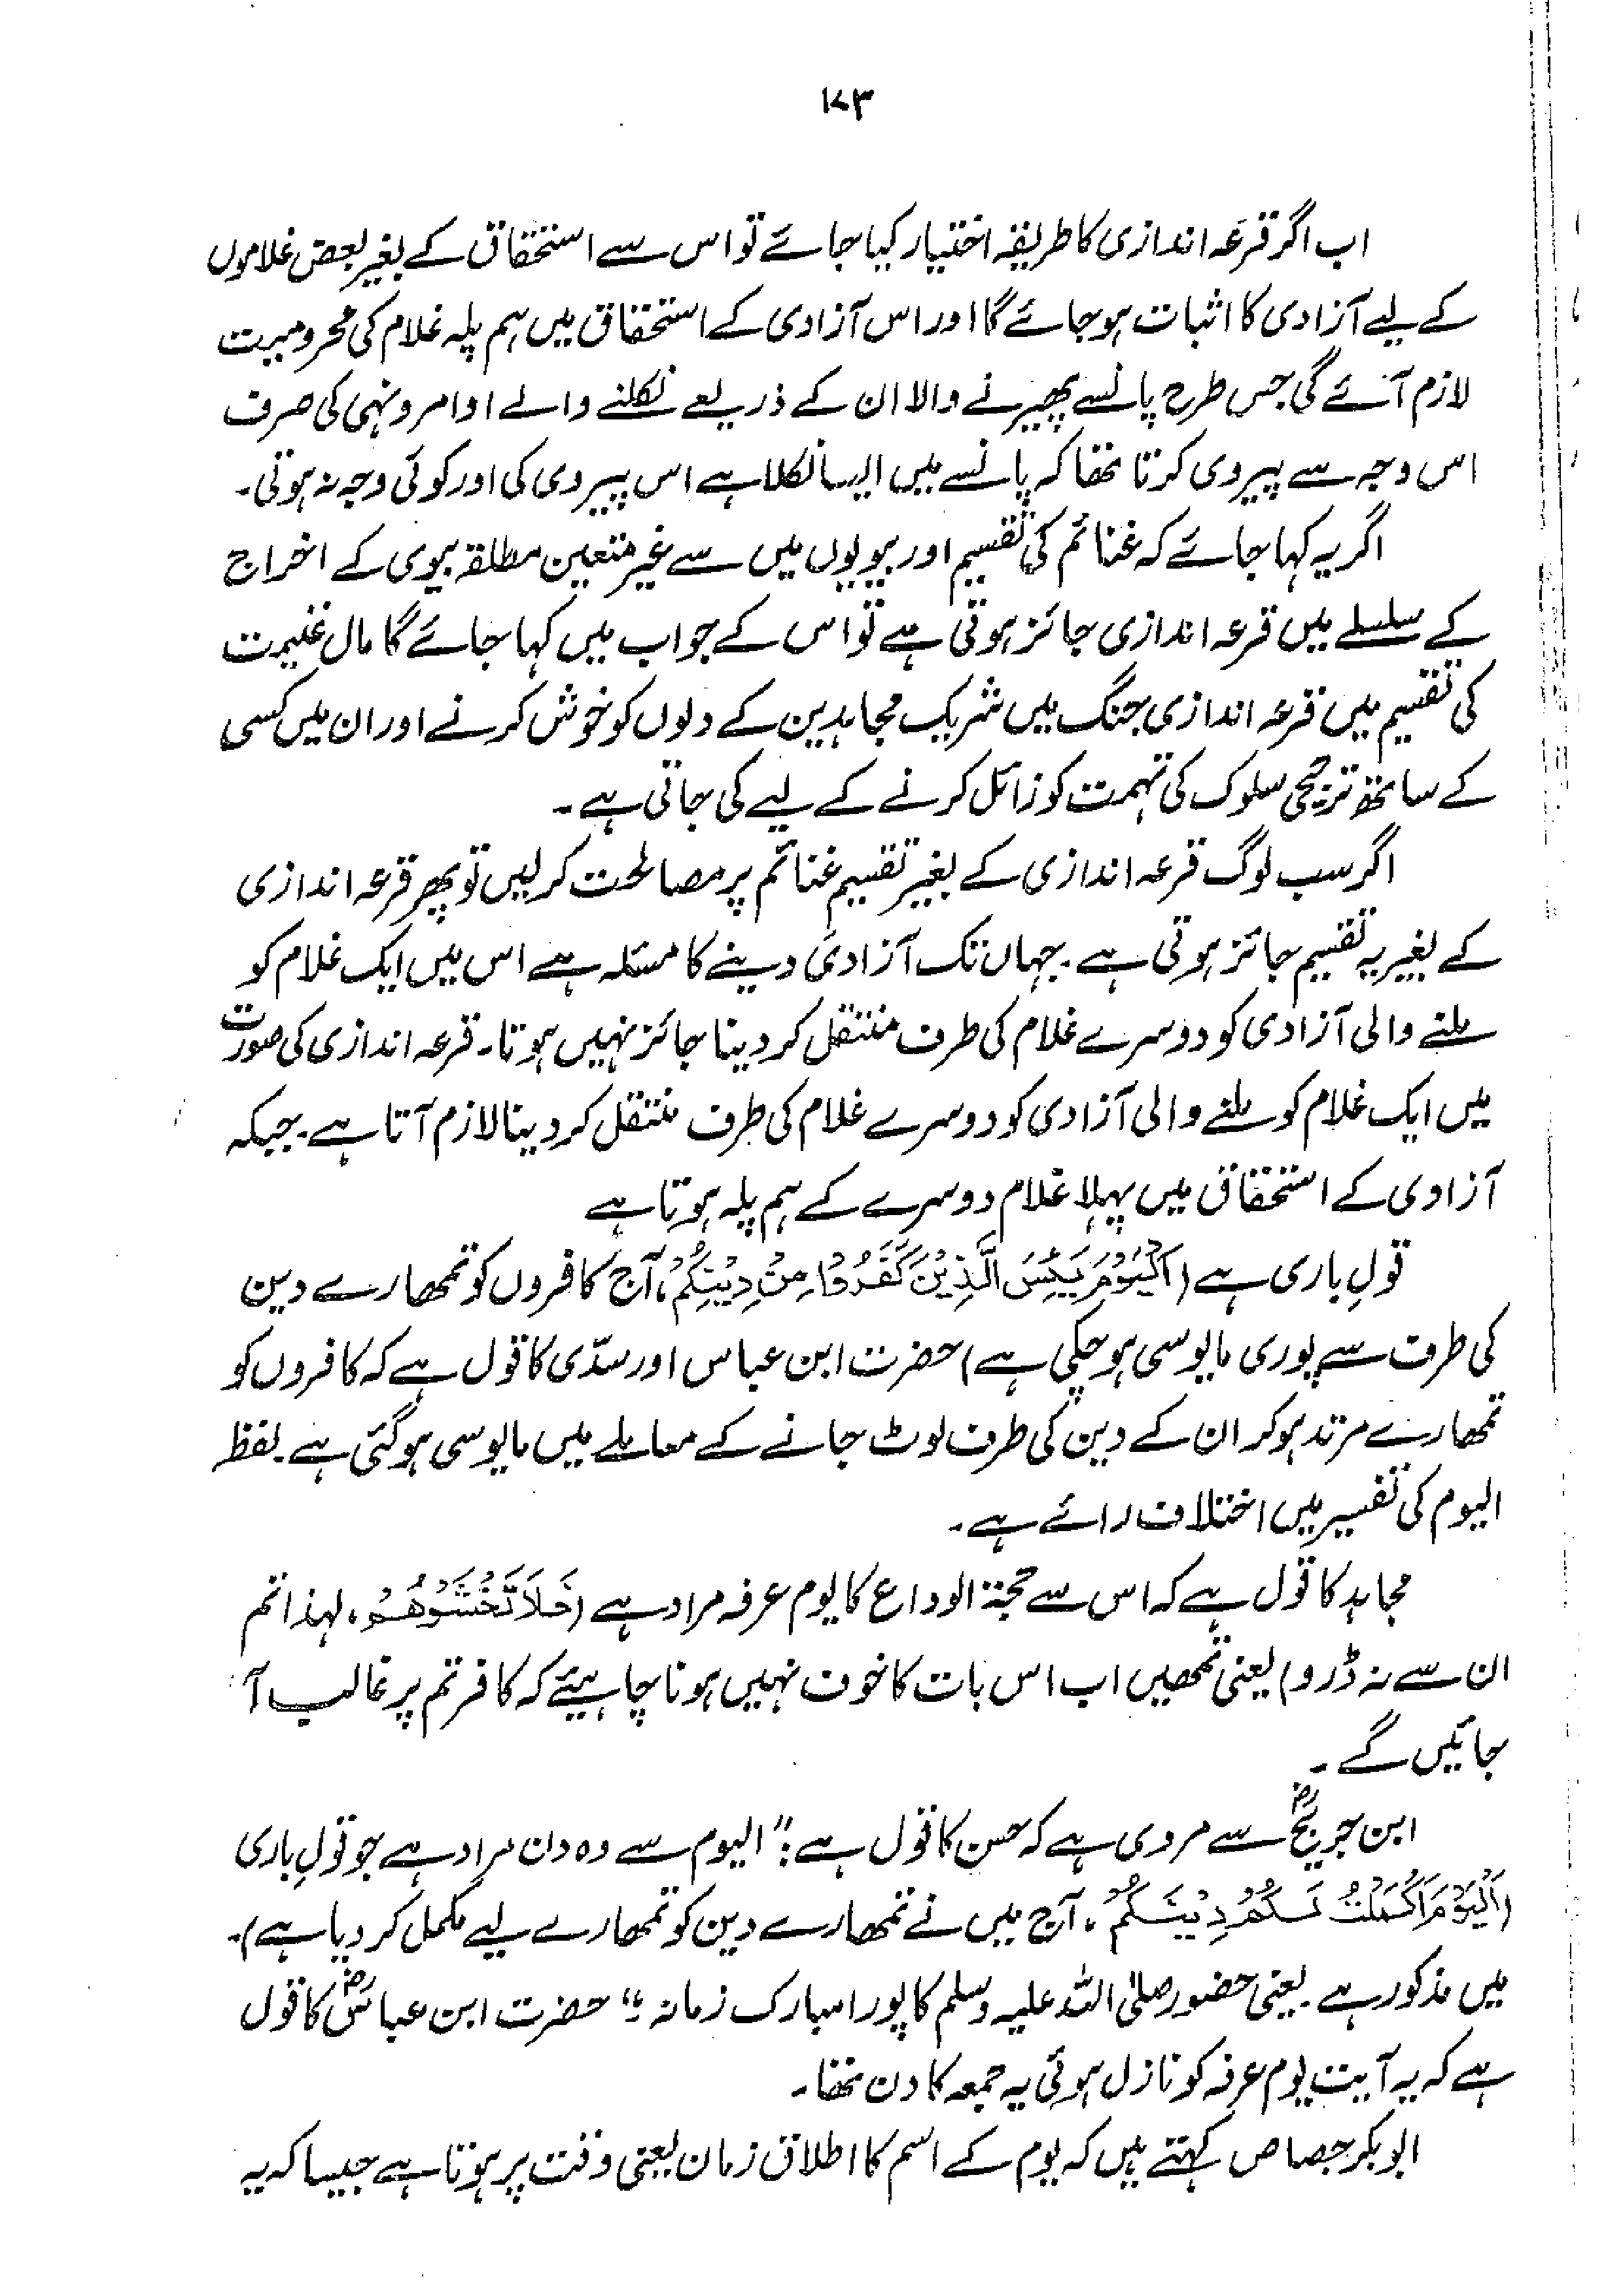 ۱۷۳
اب اگر قرعہ اندازی کا طریقہ اختیار کیا جائے تو اس سے استحقاق کے بغیر بعض غلاموں
کے لیے آزادی کا اثبات ہو جائے گا اور اس آزادی کے استحقاق میں ہم پلہ غلام کی محرومیت
لازم آئے گی جس طرح پانسے پھیرنے والا ان کے ذریعے نکلنے والے اوامر و نہی کی صرف
اس وجہ سے پیروی کرتا تھا کہ پانسے میں ایسا نکلا ہے اس پیروی کی اور کوئی وجہ نہ ہوتی۔
اگر یہ کہا جائے کہ غنائم کی تقسیم اور بیویوں میں سے غیر متعین مطلقہ بیوی کے اخراج
کے سلسلے میں قرعہ اندازی جائز ہوتی ہے تو اس کے جواب میں کہا جائے گا مال غنیمت
کی تقسیم میں قرعہ اندازی جنگ میں شریک مجاہدین کے دلوں کو خوش کرنے اور ان میں کسی
کے ساتھ ترجیحی سلوک کی تہمت کو زائل کرنے کے لیے کی جاتی ہے۔
اگر سب لوگ قرعہ اندازی کے بغیر تقسیم غنائم پر مصالحت کر لیں تو پھر قرعہ اندازی
کے بغیر یہ تقسیم جائز ہوتی ہے۔ جہاں تک آزادی دینے کا مسئلہ ہے اس میں ایک غلام کو
ملنے والی آزادی کو دوسرے غلام کی طرف منتقل کر دینا جائز نہیں ہوتا۔ قرعہ اندازی کی صورت
میں ایک غلام کو ملنے والی آزادی کو دوسرے غلام کی طرف منتقل کر دینا لازم آتا ہے۔ جبکہ
آزادی کے استحقاق میں پہلا غلام دوسرے کے ہم پلہ ہوتا ہے
قولِ باری ہے (اَلْیَوْمَ یَئِسَ الَّذِیْنَ کَفَرُوْا مِنْ دِیْنِکُمْ، آج کافروں کو تمھارے دین
کی طرف سے پوری مایوسی ہو چکی ہے) حضرت ابن عباس اور سدّی کا قول ہے کہ کافروں کو
تمھارے مرتد ہو کر ان کے دین کی طرف لوٹ جانے کے معاملے میں مایوسی ہو گئی ہے۔ لفظ
الیوم کی تفسیر میں اختلاف رائے ہے۔
مجاہد کا قول ہے کہ اس سے حجۃ الوداع کا یوم عرفہ مراد ہے (فَلَا تَخْشَوْھُمْ، لہذا تم
ان سے نہ ڈرو) یعنی تمھیں اب اس بات کا خوف نہیں ہونا چاہیئے کہ کافر تم پر غالب آ
جائیں گے۔
ابن جریجؒ سے مروی ہے کہ حسن کا قول ہے: "الیوم سے وہ دن مراد ہے جو قولِ باری
(اَلْیَوْمَ اَکْمَلْتُ لَکُمْ دِیْنَکُمْ، آج میں نے تمھارے دین کو تمھارے لیے مکمل کر دیا ہے)۔
میں مذکور ہے۔ یعنی حضور صلی اللہ علیہ وسلم کا پورا مبارک زمانہ"۔ حضرت ابن عباسؓ کا قول
ہے کہ یہ آیت یوم عرفہ کو نازل ہوئی یہ جمعہ کا دن تھا۔
ابوبکر جصاص کہتے ہیں کہ یوم کے اسم کا اطلاق زمان یعنی وقت پر ہوتا ہے جیسا کہ یہ